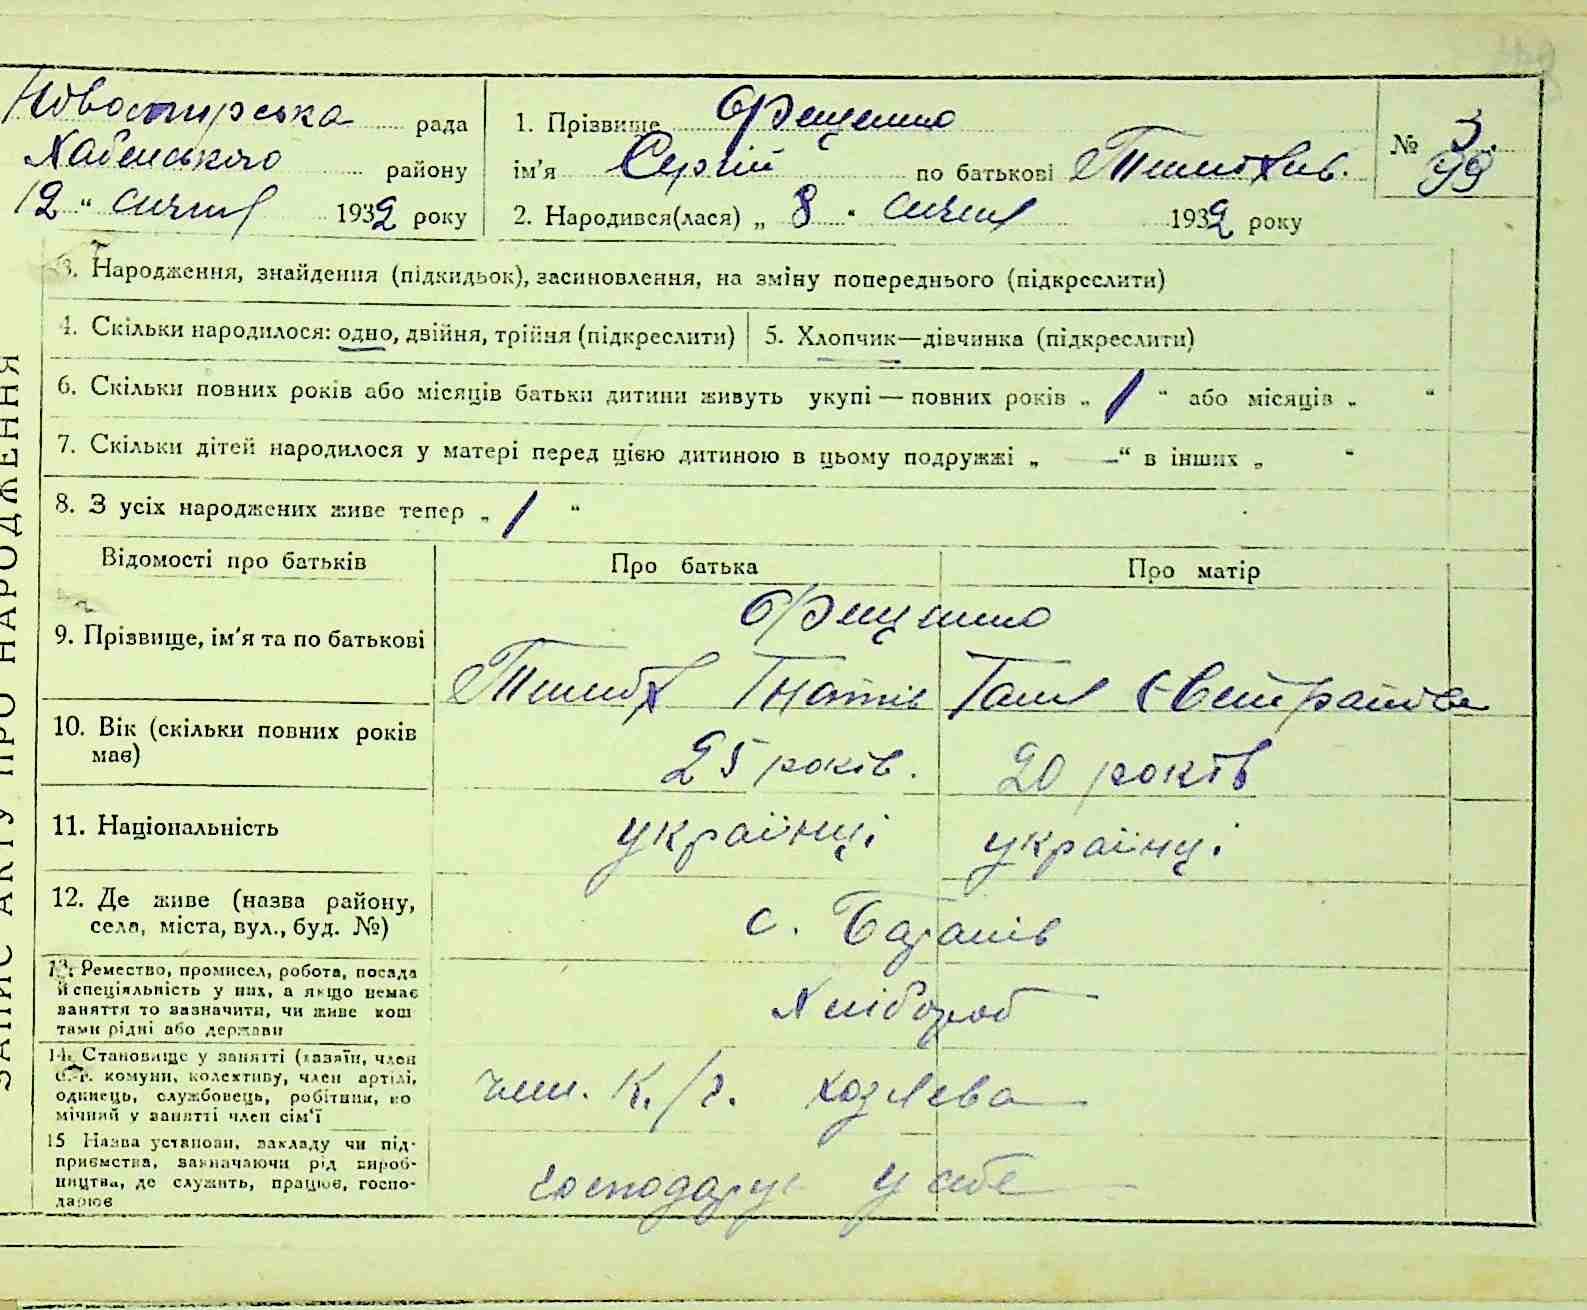 Новомирська рада
Хабенського району
12 " січня 1932 року
1. Прізвище Фещенко
ім'я Сергій по батькові Тимохів.
2. Народився(лася) „ 8 " січня 1932 року
№ 3
99
ЗАПИС АКТУ ПРО НАРОДЖЕННЯ
3. Народження, знайдення (підкидьок), засиновлення, на зміну попереднього (підкреслити)
4. Скільки народилося: одно, двійня, трійня (підкреслити)
5. Хлопчик—дівчинка (підкреслити)
6. Скільки повних років або місяців батьки дитини живуть укупі — повних років „ 1 " або місяців „ "
7. Скільки дітей народилося у матері перед цією дитиною в цьому подружжі „ —" в інших „ "
8. З усіх народжених живе тепер „ 1 "
Відомості про батьків Про батька Про матір
9. Прізвище, ім'я та по батькові
Фещенко
Тимох Гнатів Ганя Євстратова
10. Вік (скільки повних років
має)
25 років. 20 років
11. Національність українці українці
12. Де живе (назва району,
села, міста, вул., буд. №)
с.
13. Ремество, промисел, робота, посада
й спеціяльність у них, а якщо немає
заняття то зазначити, чи живе кош
тами рідні або держави
Хлібороб
14. Становище у занятті (хазяїн, член
с.-г. комуни, колективу, член артілі,
одинець, службовець, робітник, по
мічний у занятті член сім'ї
член. К./г. хозяєва
15 Назва установи, закладу чи під-
приємства, зазначаючи рід вироб-
ництва, де служить, працює, госпо-
дарює
господарує у себе